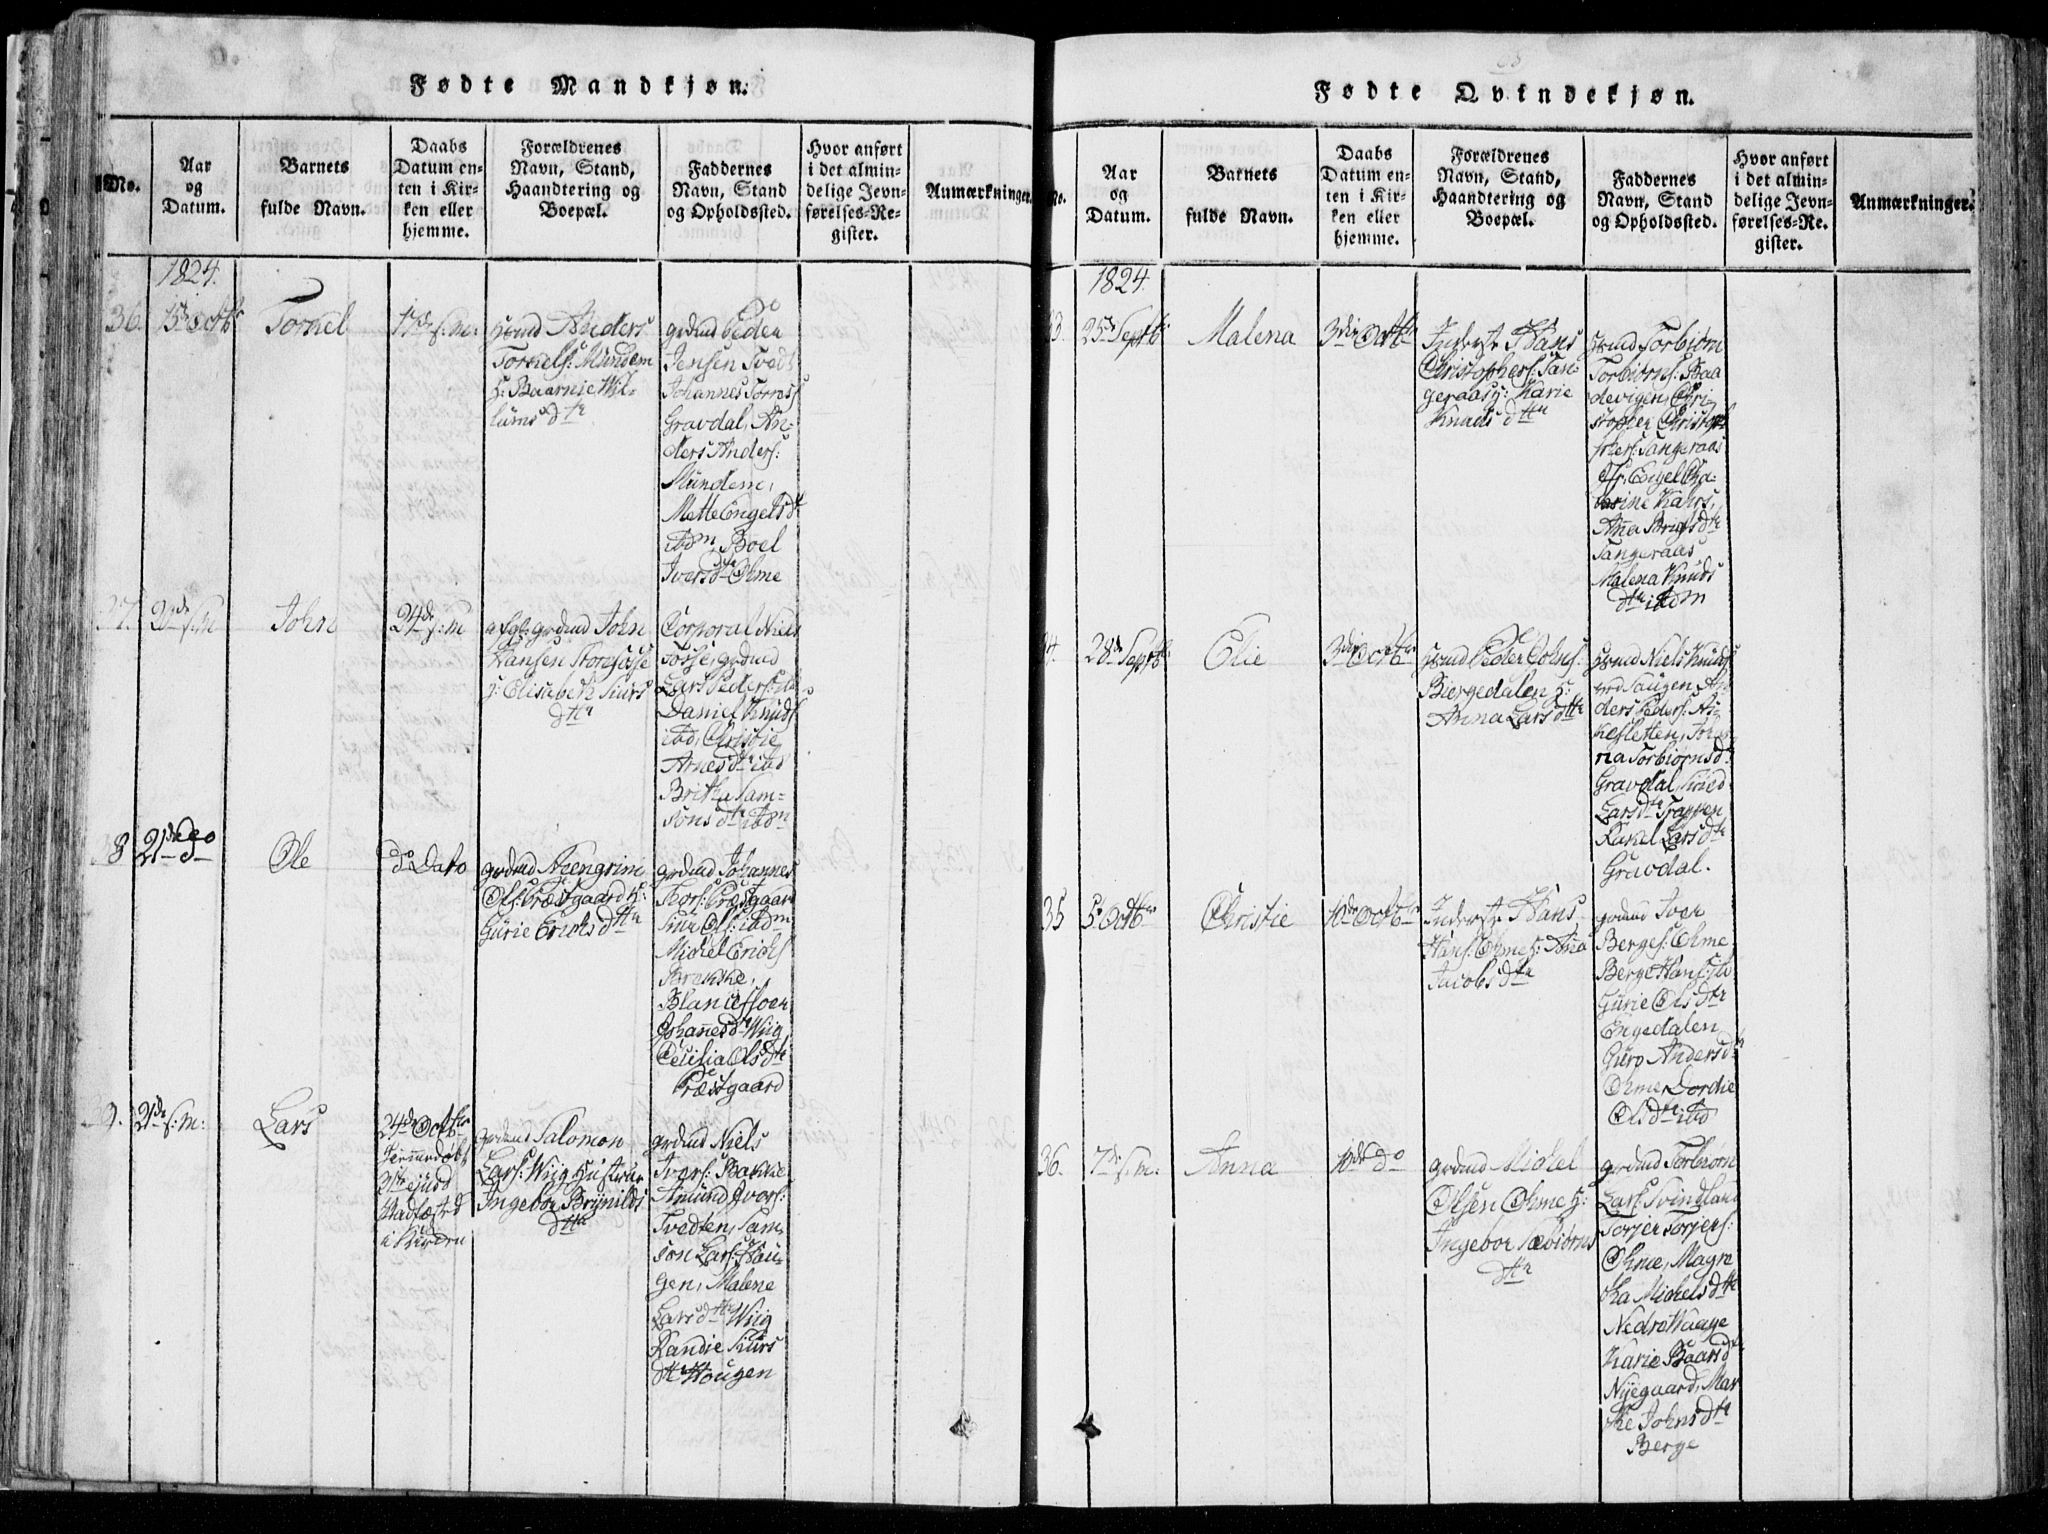 Fødte Mandkjøn.
No.
Aar
og
Datum.
Barnets
fulde Navn.
Daabs
Datum en-
ten i Kir-
ken eller
hjemme.
Forældrenes
Navn, Stand,
Haandtering og
Boepæl.
Faddernes
Navn, Stand
og Opholdssted.
Hvor anført
i det almin-
delige Jevn-
førelses-Re-
gister.
Anmærkninger.
1824.
36.
15de Octb
Torkel
17de s: m:
Anders
Torkels: Mundem
H: Baarnie Wil-
lums dtr
grdmd Peder
Jensen Tvedt
Johannes
Gravdal, An-
ders Anders:
Mundem,
Mette Engels dtr
ibdm, Boel
Ivers dtr Ohme
37.
s: m
John
24de s: m
afgl: grdmd John
Hansen
H: Elisabeth Siurs
dtr
Corporal Niels
Fosse, grdmd
Lars Peders:
Daniel Knuds:
ibd, Christie
Arnes dtr ibd
Britha Sam-
sons dtr ibdm
38
21de do
Ole
do Dato
grdmd Steengrim
Ols: Præstgaard H:
Gürie Erichs dtr
grdmd Johannes
Præstgaard
Siur Ols: ibdm
Michel Erichs
Brekke,
Johannes dtr Wiig
Cecilia Ols dtr
Præstgaard
39.
21de s: m:
Lars
24de Octbr
31te ejusd
i Kirken
grdmd Salomon
Lars: Wiig Hustrue
Ingebor Brynilds
dtr
grdmd Niels
Ivers: Bakke
Amund Ivers:
Tvedten, Sam-
son Lars: Hau-
gen, Malene
Lars dtr Wiig
Randie Siurs
dtr Hougen
Fødte Qvindekjøn.
No.
Aar
og
Datum.
Barnets
fulde Navn.
Daabs
Datum en-
ten i Kir-
ken eller
hjemme.
Forældrenes
Navn, Stand,
Haandtering og
Boepæl.
Faddernes
Navn, Stand
og Opholdssted.
Hvor anført
i det almin-
delige Jevn-
førelses-Re-
gister.
Anmærkninger.
1824.
33.
25de Septb
Malena
3die Octbr
Inderst Hans
Christophers: Tan-
geraas H: Karie
Knuds dtr
Torbiørn
Torbiørns: Baa
devigen, Chri-
stopher Christoph
hers: Tangeraas
Jfr. Engel Cha-
Anna Brigts dtr
Tangeraas
Malena Knuds
dtr ibdm
34.
28de Septb
Elie
3die Octbr
Peder Johns:
Biergedalen H:
Anna Lars dtr
Niels Knuds:
Saugen, An
ders Peders:
Torbiørns dtr
Gravdal, Siued
Lars dtr Trappen
Rakel Lars dtr
Gravdal.
35
5te Octbr
Christie
10de Octbr
Inderst Hans
Hans: Ohme H: Anna
Jacobs dtr
grdmd Iver
Berges: Ohme
Berge Hans: ib
Gürie Ols dtr
Engedalen
Guro Anders dtr
Ohme, Dordie
Ols dtr ibd
36.
7de s: m:
Anna
10de do
grdmd Michel
Olsen Ohme H:
Ingebor Sæbiørns
dtr
grdmd Torbiørn
Lars: Svindland
Torjer Torjers:
Ohme, Magre
tha Michels dtr
Nedre Waage
Karie Baars dtr
Nyegaard, Mar
the Johns dtr
Berge